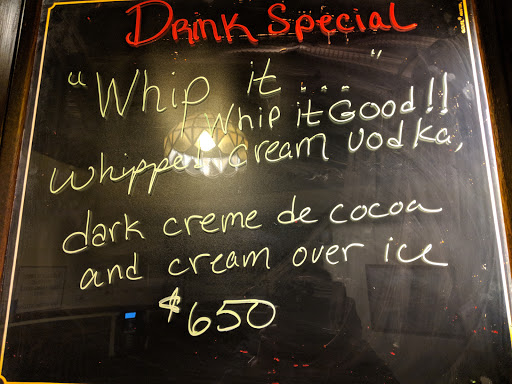 Drink Special
"Whip it... "
Whip it Good!!
Whipped cream vodka,
dark creme de cocoa
and cream over ice
$650